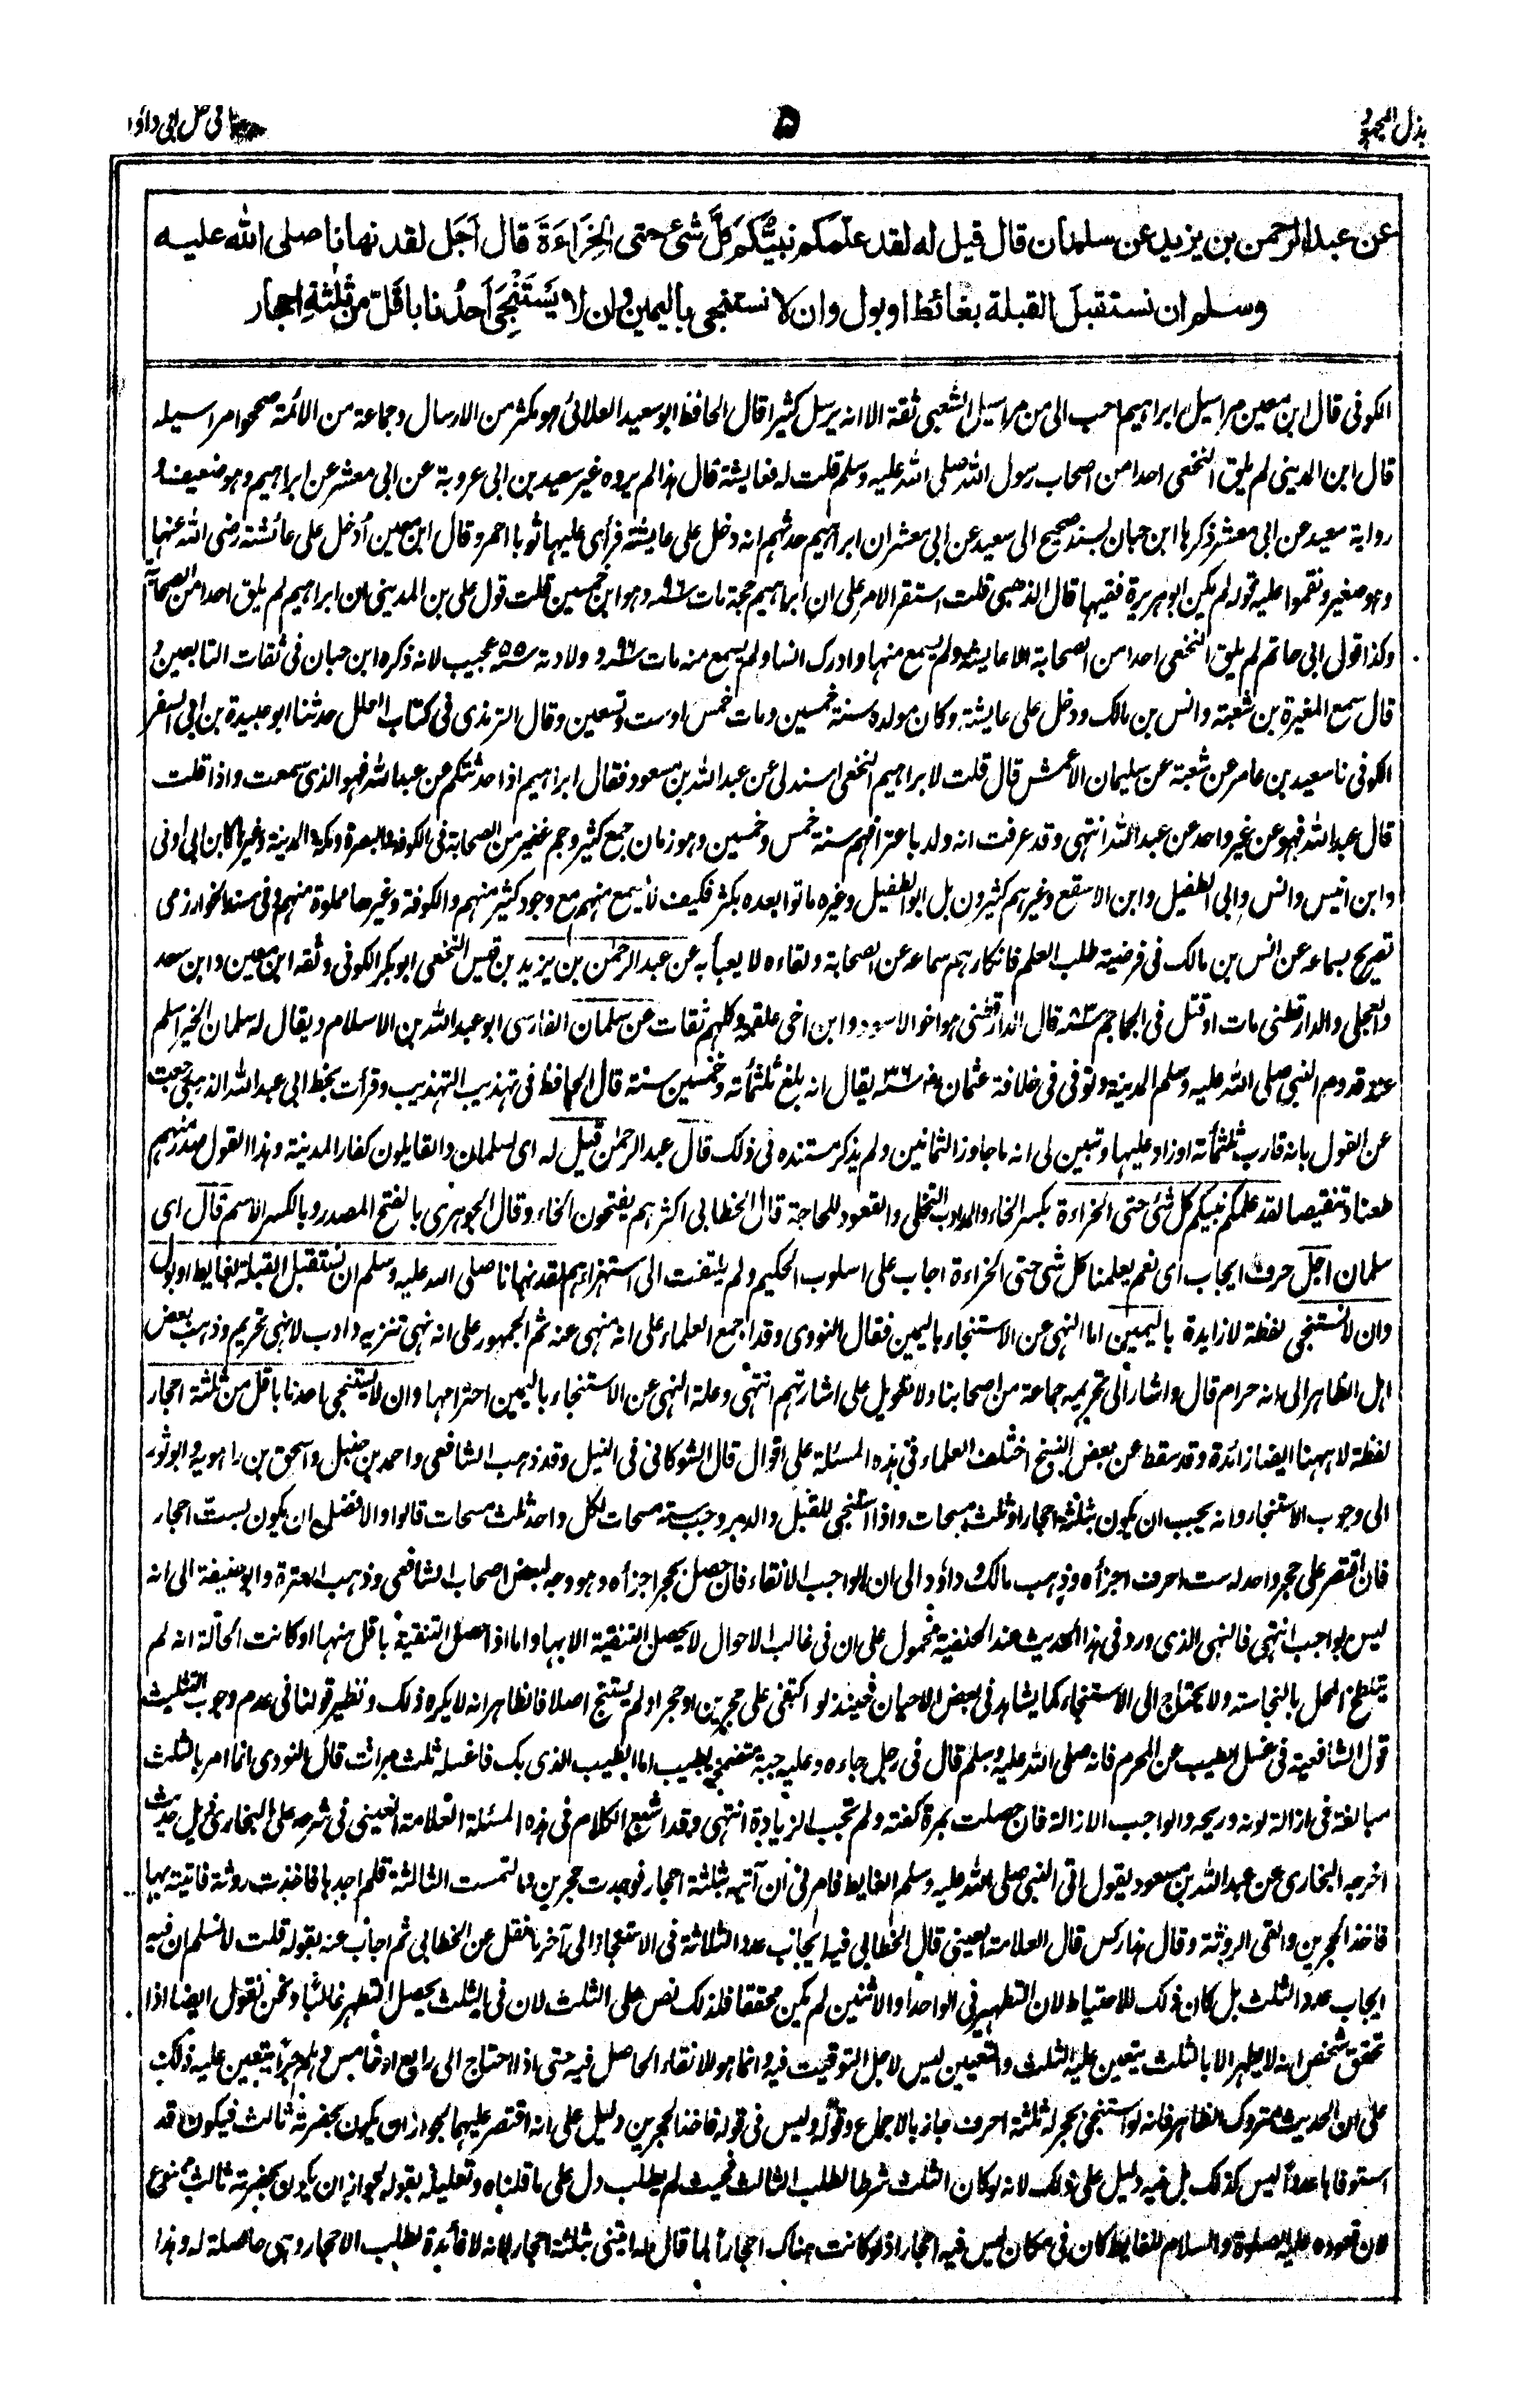 بذل المجهود
۵
فى حل ابى داؤد
عن عبد الرحمن بن يزيد عن سلمان قال قيل له لقد علّمكم نبيُّكم كلَّ شئ حتى الخِرَاءَةَ قال اَجَل لقد نهانا صلى الله عليه
وسلم ان نستقبل القبلة بغائط او بول وان لا نستنجى باليمين وان لا يَسْتَنْجِىَ اَحدُنا باقَلّ من ثلثةِ احجار
الكوفى قال ابن معين مراسيل ابراهيم احب الى من مراسيل الشعبى ثقة الا انه يرسل كثيرا قال الحافظ ابو سعيد العلائى هو مكثر من الارسال وجماعة من الائمة صححوا مراسيله
قال ابن المدينى لم يلق النخعى احدا من اصحاب رسول الله صلى الله عليه وسلم قلت له فعايشة قال هذا لم يروه غير سعيد بن ابى عروبة عن ابى معشر عن ابراهيم وهو ضعيف و
رواية سعيد عن ابى معشر ذكرها ابن حبان بسند صحيح الى سعيد عن ابى معشر ان ابراهيم حدثهم انه دخل على عايشة فرأى عليها ثوبا احمر وقال ابن معين اُدخل على عائشة رضى الله عنها
وهو صغير ونقموا عليه قوله لم يكن ابو هريرة فقيها قال الذهبى قلت استقر الامر على ان ابراهيم حجة مات سنة ۹۶ وهو ابن خمسين قلت قول على بن المدينى ان ابراهيم لم يلق احدا من الصحابة
وكذا قول ابى حاتم لم يلق النخعى احدا من الصحابة الا عايشة ولم يسمع منها وادرك انسا ولم يسمع منه مات سنة ۹۶ وولادته سنة ۵۵ عجيب لانه ذكره ابن حبان فى ثقات التابعين و
قال سمع المغيرة بن شعبة وانس بن مالك ودخل على عايشة وكان مولده سنة خمسين ومات خمس او ست وتسعين وقال الترمذى فى كتاب العلل حدثنا ابو عبيدة بن ابى السفر
الكوفى نا سعيد بن عامر عن شعبة عن سليمان الاعمش قال قلت لابراهيم النخعى اسند لى عن عبد الله بن مسعود فقال ابراهيم اذا حدثتكم عن عبد الله فهو الذى سمعت واذا قلت
قال عبد الله فهو عن غير واحد عن عبد الله انتهى وقد عرفت انه ولد باعترافهم سنة خمس وخمسين وهو زمان جمع كثير وجم غفير من الصحابة فى الكوفة والبصرة ومكة والمدينة وغيرها كابن ابى اوفى
وابن انيس وانس وابى الطفيل وابن الاسقع وغيرهم كثيرون بل ابو الطفيل وغيره ماتوا بعده بكثر فكيف لا يسمع منهم مع وجود كثير منهم والكوفة وغيرها مملوة منهم وفى مسند الخوارزمى
تصريح بسماعه عن انس بن مالك فى فرضية طلب العلم فانكارهم سماعه عن الصحابة ولقاءه لا يعبأ به عن عبد الرحمن بن يزيد بن قيس النخعى ابو بكر الكوفى وثقه ابن معين وابن سعد
والعجلى والدارقطنى مات او قتل فى الجماجم سنة ۸۳ قال الدارقطنى هو اخو الاسود وابن اخى علقمة وكلهم ثقات عن سلمان الفارسى ابو عبد الله بن الاسلام ويقال له سلمان الخير اسلم
عند قدوم النبى صلى الله عليه وسلم المدينة وتوفى فى خلافة عثمان سنة ۳۶ يقال انه بلغ ثلثمائة وخمسين سنة قال الحافظ فى تهذيب التهذيب وقرأت بخط ابى عبد الله الذهبى رجعت
عن القول بانه قارب ثلثمائة او زاد عليها وتبين لى انه ما جاوز الثمانين ولم يذكر مستنده فى ذلك قال عبد الرحمن قيل له اى لسلمان والقايلون كفار المدينة وهذا القول صدر منهم
طعنا وتنقيصا لقد علمكم نبيكم كل شئ حتى الخراءة بكسر الخاء والمد ادب التخلى والقعود للحاجة قال الخطابى اكثرهم يفتحون الخاء وقال الجوهرى بالفتح المصدر وبالكسر الاسم قال اى
سلمان اجل حرف ايجاب اى نعم يعلمنا كل شئ حتى الخراءة اجاب على اسلوب الحكيم ولم يلتفت الى استهزاءهم لقد نهانا صلى الله عليه وسلم ان نستقبل القبلة بغايط او بول
وان لا نستنجى لفظة لا زايدة باليمين اما النهى عن الاستنجاء باليمين فقال النووى وقد اجمع العلماء على انه منهى عنه ثم الجمهور على انه نهى تنزيه وادب لا نهى تحريم وذهب بعض
اهل الظاهر الى انه حرام قال واشار الى تحريمه جماعة من اصحابنا ولا تعويل على اشارتهم انتهى وعلة النهى عن الاستنجاء باليمين احترامها وان لا يستنجى احدنا باقل من ثلثة احجار
لفظة لا ههنا ايضا زائدة وقد سقط عن بعض النسخ اختلف العلماء فى هذه المسئلة على اقوال قال الشوكانى فى النيل وقد ذهب الشافعى واحمد بن حنبل واسحق بن راهويه وابو ثور
الى وجوب الاستنجاء وانه يجب ان يكون بثلثة احجار او ثلث مسحات واذا استنجى للقبل والدبر وجب ستة مسحات لكل واحد ثلث مسحات قالوا والافضل ان يكون بست احجار
فان اقتصر على حجر واحد له ست احرف اجزأه وذهب مالك وداؤد الى ان الواجب الانقاء فان حصل بحجر اجزأه وهو وجه لبعض اصحاب الشافعى وذهب العترة وابو حنيفة الى انه
ليس بواجب انتهى فالنهى الذى ورد فى هذا الحديث عند الحنفية محمول على ان فى غالب الاحوال لا يحصل التنقية الا بها واما اذا حصل التنقية باقل منها او كانت الحالة انه لم
يتلطخ المحل بالنجاسة ولا يحتاج الى الاستنجاء كما يشاهد فى بعض الاحيان فحينئذ لو اكتفى على حجرين او حجر او لم يستنج اصلا فالظاهر انه لا يكره ذلك ونظير قولنا فى عدم وجوب التثليث
قول الشافعية فى غسل الطيب عن المحرم فانه صلى الله عليه وسلم قال فى رجل جاءه وعليه جبة متضمخ بطيب اما الطيب الذى بك فاغسله ثلث مرات قال النووى انما امر بالثلث
مبالغة فى ازالة لونه وريحه والواجب الازالة فان حصلت بمرة كفته ولم تجب الزيادة انتهى وقد اشبع الكلام فى هذه المسئلة العلامة العينى فى شرحه على البخارى فى ذيل حديث
اخرجه البخارى عن عبد الله بن مسعود يقول اتى النبى صلى الله عليه وسلم الغايط فامرنى ان آتيه بثلثة احجار فوجدت حجرين والتمست الثالثة فلم اجدها فاخذت روثة فاتيته بها
فاخذ الحجرين والقى الروثة وقال هذا ركس قال العلامة العينى قال الخطابى فيه ايجاب عدد الثلاثة فى الاستنجاء الى آخر ما نقل عن الخطابى ثم اجاب عنه بقوله قلت لا نسلم ان فيه
ايجاب عدد الثلث بل كان ذلك للاحتياط لان التطهير فى الواحد او الاثنين لم يكن محققا فلذلك نص على الثلث لان فى الثلث يحصل التطهر غالبا ونحن نقول ايضا اذا
تحقق شخص انه لا يطهر الا بالثلث يتعين عليه الثلث والتعيين ليس لاجل التوقيت فيه وانما هو للانقاء الحاصل فيه حتى اذا احتاج الى رابع او خامس وهلم جرا يتعين عليه ذلك
على ان الحديث متروك الظاهر فانه لو استنجى بحجر له ثلثة احرف جاز بالاجماع وقوله وليس فى قوله فاخذ الحجرين دليل على انه اقتصر عليهما لجواز ان يكون بحضرته ثالث فيكون قد
استوفاها عددا ليس كذلك بل فيه دليل على ذلك لانه لو كان الثلث شرطا لطلب الثالث فحيث لم يطلب دل على ما قلناه وتعليله بقوله لجواز ان يكون بحضرته ثالث ممنوع
لان قعوده عليه الصلوة والسلام للغايط كان فى مكان ليس فيه احجار اذ لو كانت هناك احجار لما قال له ائتنى بثلثة احجار لانه لا فائدة لطلب الاحجار وهى حاصلة له وهذا